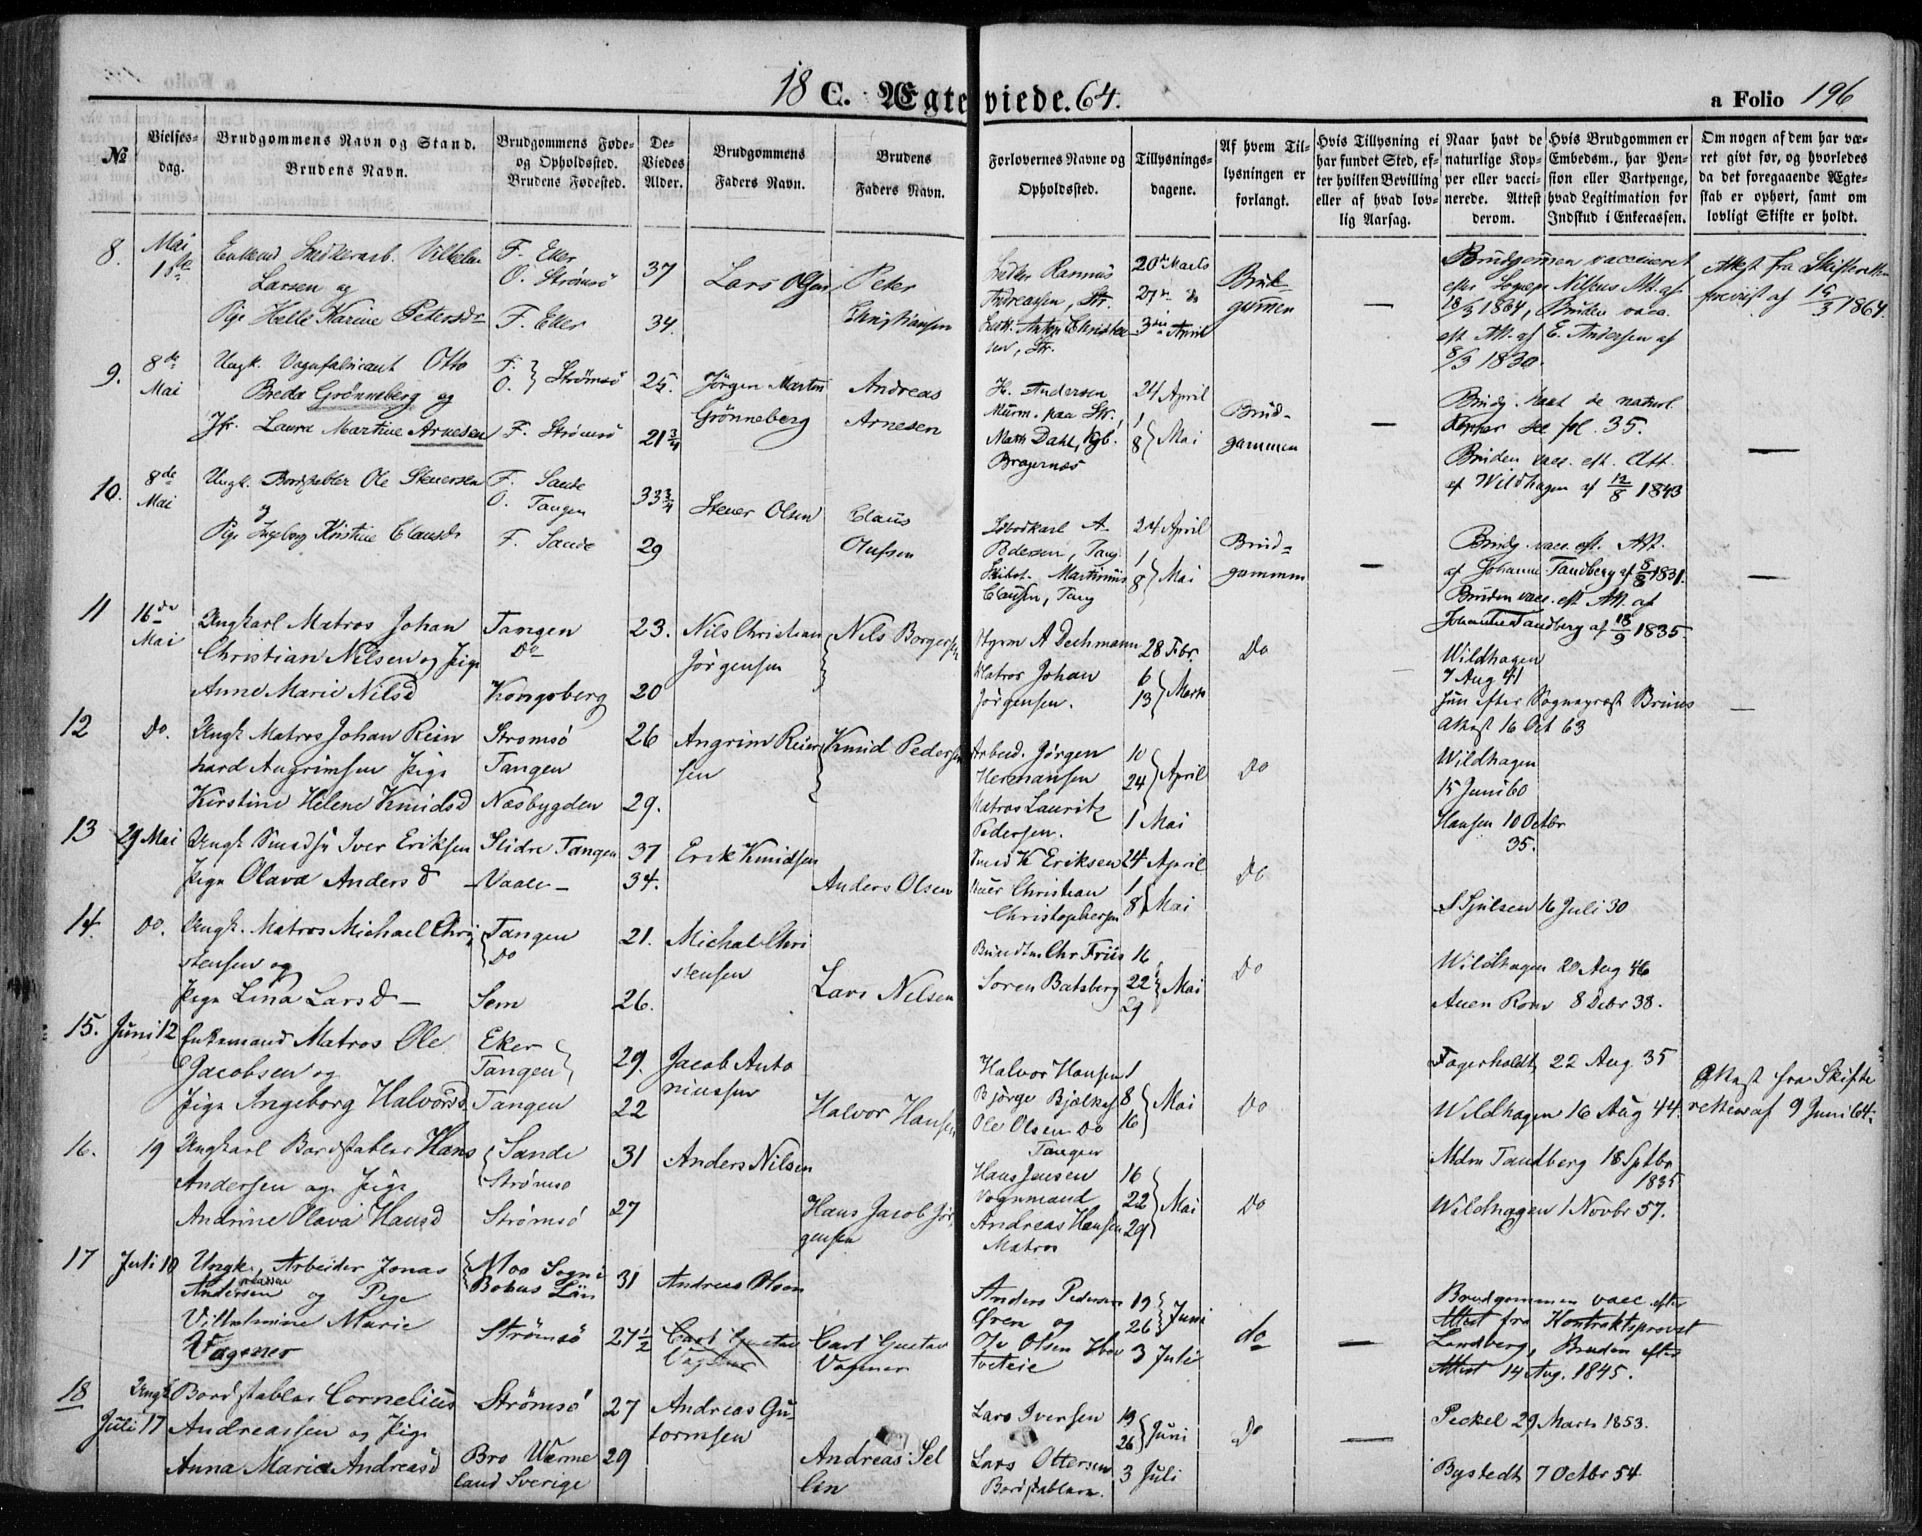 18 C. Ægteviede. 64.
a Folio 196
№
Vielses-
dag.
Brudgommens Navn og Stand.
Brudens Navn.
Brudgommens Føde-
og Opholdssted.
Brudens Fødested.
De-
Viedes
Alder.
Brudgommens
Faders Navn.
Brudens
Faders Navn.
Forlovernes Navne og
Opholdssted.
Tillysnings-
dagene.
Af hvem Til-
lysningen er
forlangt.
Hvis Tillysning ei
har fundet Sted, ef-
ter hvilken Bevilling
eller af hvad lov-
lig Aarsag.
Naar havt de
naturlige Kop-
per eller vacci-
nerede. Attest
derom.
Hvis Brudgommen er
Embedsm., har Pen-
sion eller Vartpenge,
hvad Legitimation for
Indskud i Enkecassen.
Om nogen af dem har væ-
ret givt før, og hvorledes
da det foregaaende Ægte-
skab er ophørt, samt om
lovligt Skifte er holdt.
8.
Mai
1ste
Enkemd Snedkerarb. Vilhelm
Larsen og
Pige Helle Karine Petersd
F. Eker
O. Strömsö
F. Eker
37
34.
Lars Olsen
Peter
Christiansen
Snedker Rasmus
Andreasen, Str.
Anton Christen
sen, Str.
20de Marts
27de do
3die April
Brud-
gommen
—
Brudgommen vaccineret
efter Sogнepr. Nilsens Att. af
18/3 1864, Bruden vacc.
eft Att. af E. Andersen af
8/3 1830.
Attest fra Skifteretten
forevist af 15/3 1864.
9.
8de
Mai
Ungk. Vognfabricant Otto
Breda Grønneberg og
Jfr. Laura Martine Arnesen
F.
O. } Strömsö
F. Strömsö
25.
21 3/4
Jörgen Martin
Grönneberg
Andreas
Arnesen
H. Andersen
Murm. paa Str.
Math Dahl, Kgb.
Bragernæs
24 April
1
8 } Mai
Brud-
gommen
—
Brudg. havt de naturl.
Kopper see fol. 35.
Bruden vacc. eft. Att.
af Wildhagen af 12/8 1843
—
10.
8de
Mai
Ungk. Bordstabler Ole Stenersen
og
Pige Ingeborg Kirstine Clausd
F. Sande
O. Tangen
F. Sande
33 3/4
29
Stener Olsen
Claus
Olufsen
A
Pedersen, Tang.
Martinius
Clausen, Tang
24 April
1
8 } Mai
Brud-
gommen
—
Brudg. vacc. eft. Att.
af Johanne Tandberg af 1831.
Bruden vacc. eft Att. af
Johanne Tandberg af 18/9 1835.
—
11
16de
Mai
Ungkarl Matros Johan
Christian Nilsen og Pige
Anne Marie Nilsd
Tangen
Do
Kongsberg
23.
20
Nils Christian
Jörgensen
Nils Borgersen
A Dechmann
Matros Johan
Jörgensen.
28 Febr.
6
13 } Marts
Do
Wildhagen
7 Aug 41
hun efter Sognepræst Bruns
Attest 16 Oct 63
—
12
Do.
Ungk Matros Johan Rein
hard Angrimsen Pige
Kirstine Helene Knudsd
Stromsö
Tangen
Næsbygden
26
29.
Angrim Reier
sen
Knud Pedersen
Arbeid. Jörgen
Hermansen
Matros Lauritz
Pedersen.
10
24 } April
1 Mai
Do
Wildhagen
15 Juni 60
Hansen 10 Octbr
35.
13
29 Mai
Ungk Iver Eriksen
Pige Olava Andersd
Slidre Tangen
-Vaale-
37
34.
Erik Knudsen
Anders Olsen
Smed K Eriksen
Christian
Christophersen
24 April
1
8 } Mai
Do
16 Juli 30
14.
Do.
Ungk. Matros Michael Chri
stensen og
Pige Lina Larsd —
Tangen
Do
Sem
21.
26.
Michal Chri
stensen
Lars Nilsen
Chr Friis
Soren Batsberg
16
22
29 } Mai
Do
Wildhagen 20 Aug 46
8 Decbr 38.
15.
Juni 12
Enkemand Matros Ole
Jacobsen og
Pige Ingeborg Halvorsd.
Eker
Tangen
Tangen
29.
22
Jacob Anto
niussen
Halvor Hansen
Halvor Hansen
Börge
Ole Olsen Do
Tangen
1
8
16 } Mai
Do
Fagerholdt 22 Aug. 35
Wildhagen 16 Aug 44.
Attest fra Skifte
retten af 9 Juni 64.
16.
19
Ungkarl Bordstabler Hans
Andersen og Pige
Andrine Olava Hansd
Sande
Strömsö
Strömsö
31
27
Anders Nilsen
Hans Jacob Jör
gensen
Hans Jensen
Vognmand
Andreas Hansen
Matros
16
22
29 } Mai
Do
Mdm Tandberg 18 Sptbr
1835
Wildhagen 1 Novbr 57.
17
Juli 10
Ungk. Arbeider Jonas
Andersen og Pige
Vilhelmine Marie
Vagener
Moo Sogn
Bohus Län
Strömsö
31
27 1/2
Andreas Olsen
Carl Gustav
Vagener
Carl Gustav
Vagener
Anders Pedersen
Ören og
Olsen
19
26 } Juni
3 Juli
do
—
Brudgommen vacc. efter
Attest fra Kontraktsprovst
Landberg, Bruden efter
Attest 14 Aug. 1845.
18
Juli 17
Ungk Bordstabler Cornelius
Andreassen og Pige
Anna Maria Andreasd
Strömsö
Bro Værme
land Sverige
27
29
Andreas Gu-
tormsen
Andreas Sel
len
Lars Iversen
Lars Ottersen
Bordstablere.
19
26 } Juni
3 Juli
Do
—
Peckel 29 Marts 1853.
Bystedt 7 Octbr 54